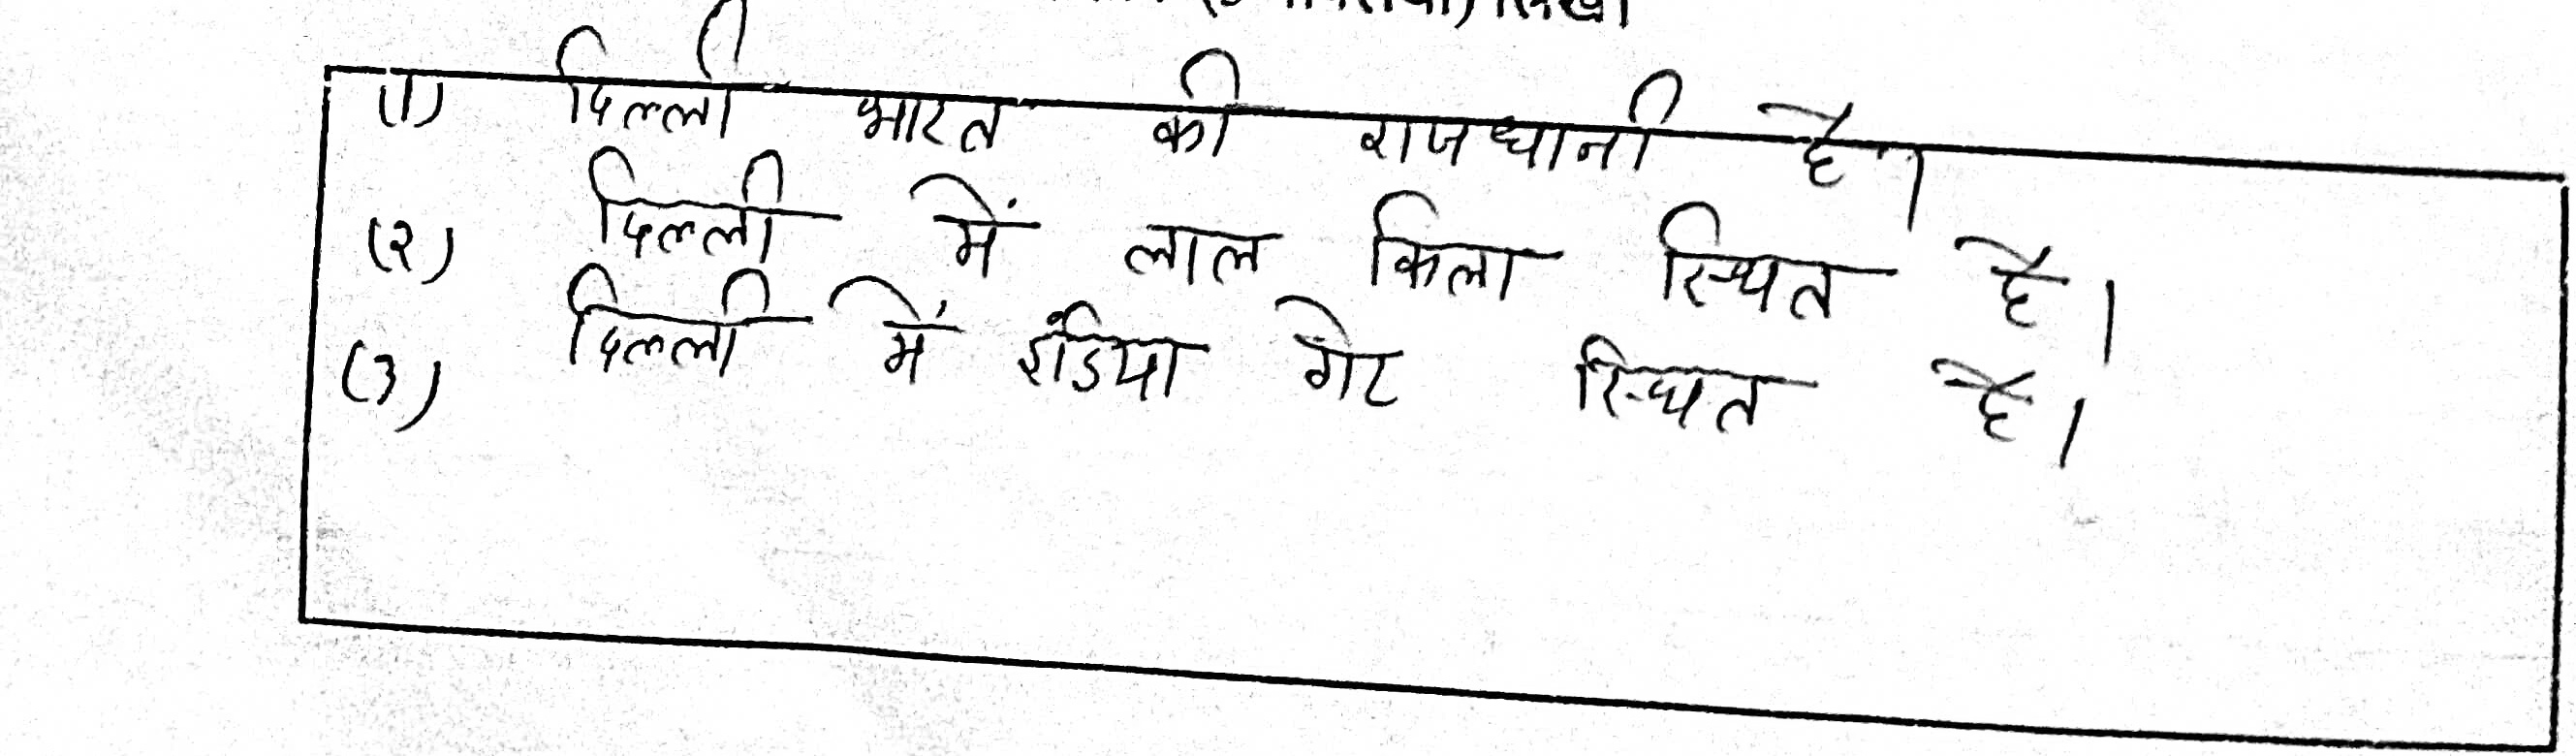 लिखो
(1) दिल्ली भारत की राजधानी है।
(२) दिल्ली में लाल किला स्थित है।
(3) दिल्ली में इंडिया गेट स्थित है।